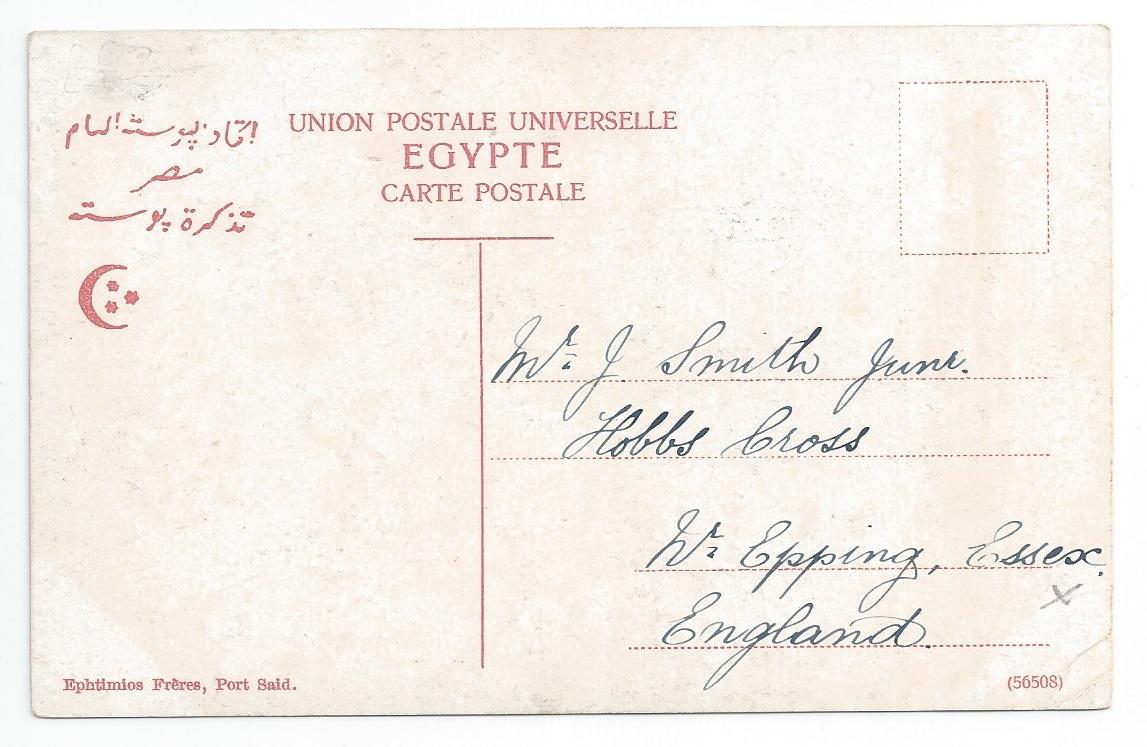 UNION POSTALE UNIVERSELLE
EGYPTE
CARTE POSTALE
اتحاد پوسته العام
مصر
تذكرة پوسته
Mr. J. Smith Junr.
Hobbs Cross
Nr. Epping, Essex.
England.
X
Ephtimios Frères, Port Said.
(56508)